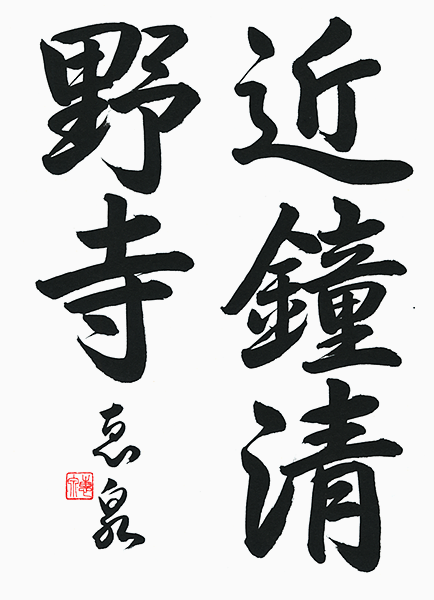 近鐘清
野寺
恵泉